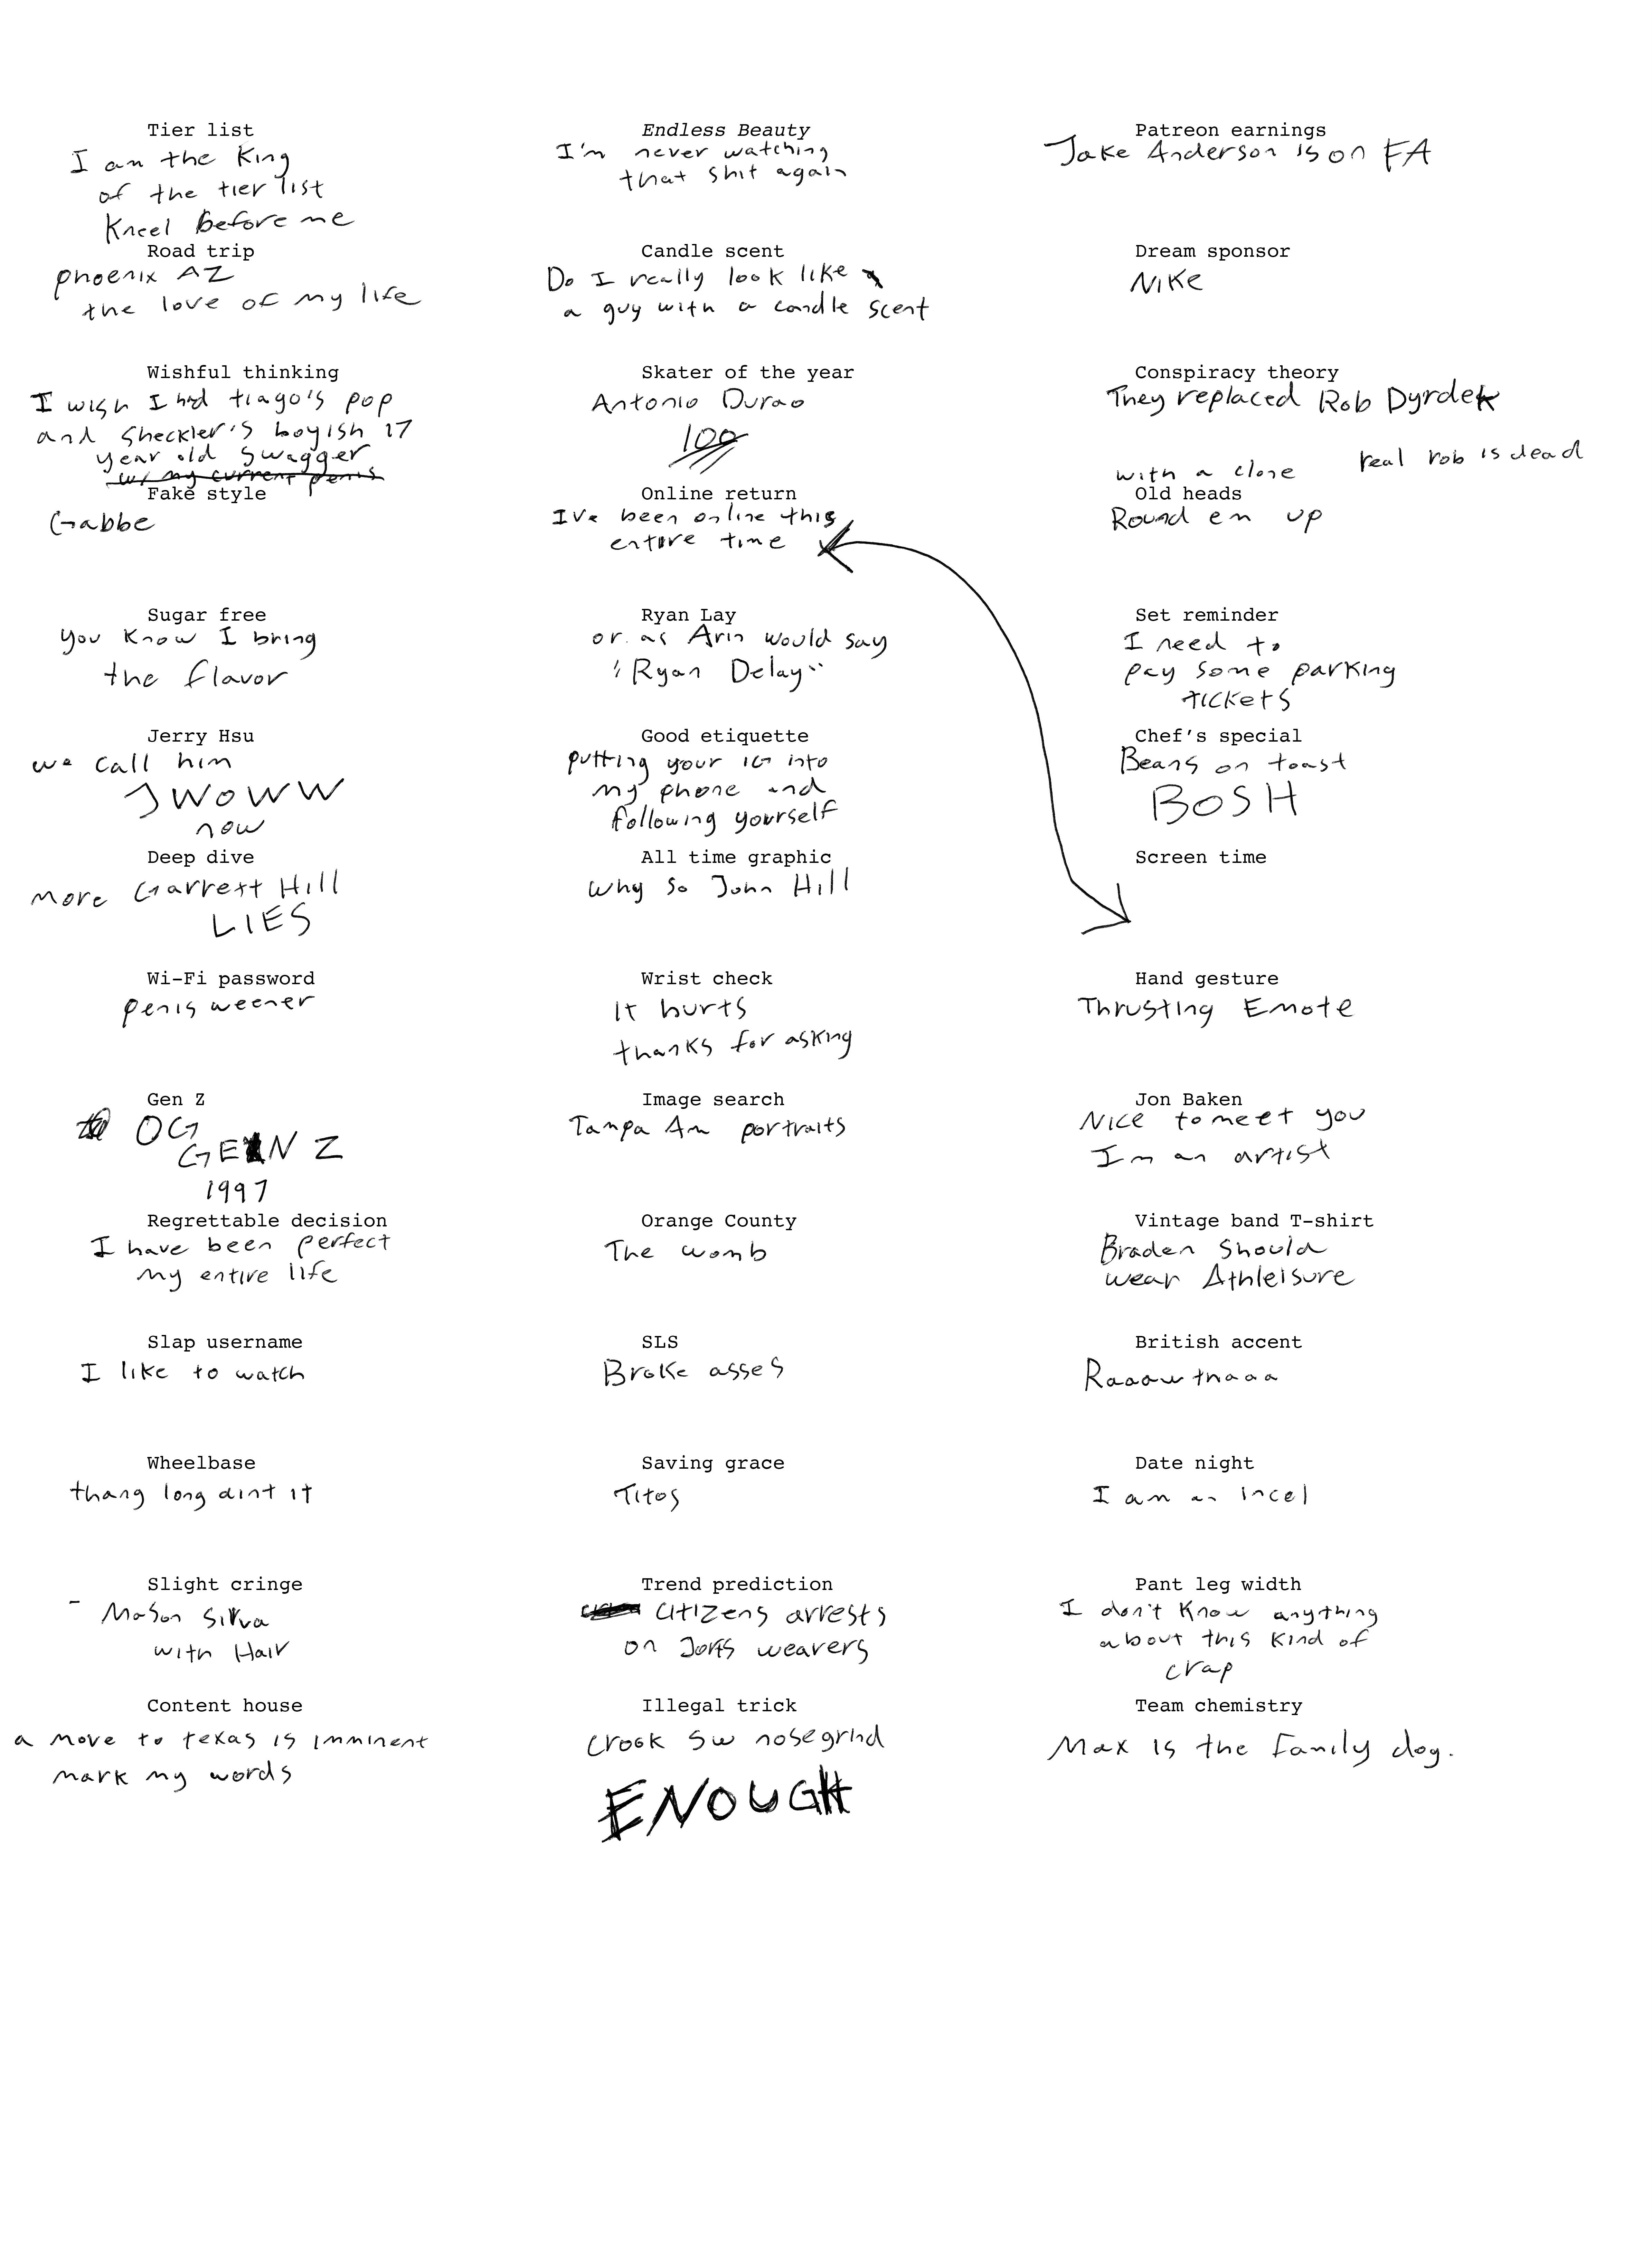 Tier list
I am the King
of the tier list
Kneel before me
Road trip
phoenix AZ
the love of my life
Wishful thinking
I wish I had tiago's pop
and Sheckler's boyish 17
year old swagger
w/ my current penis
Fake style
Gabbe
Sugar free
you know I bring
the flavor
Jerry Hsu
we call him
JWOWW
now
Deep dive
more Garrett Hill
LIES
Wi-Fi password
penis weener
Gen Z
OG
GEN Z
1997
Regrettable decision
I have been perfect
my entire life
Slap username
I like to watch
Wheelbase
thang long aint it
Slight cringe
Mason Silva
with Hair
Content house
a move to texas is imminent
mark my words
Endless Beauty
I'm never watching
that shit again
Candle scent
Do I really look like
a guy with a candle scent
Skater of the year
Antonio Durao
100
Online return
I've been online this
entire time
Ryan Lay
or as Arin would say
"Ryan Delay"
Good etiquette
putting your IG into
my phone and
following yourself
All time graphic
Why So John Hill
Wrist check
It hurts
thanks for asking
Image search
Tampa Am portraits
Orange County
The womb
SLS
Broke asses
Saving grace
Titos
Trend prediction
Citizens arrests
on Jorts wearers
Illegal trick
Crook Sw nosegrind
ENOUGH
Patreon earnings
Jake Anderson is on FA
Dream sponsor
NIKE
Conspiracy theory
They replaced Rob Dyrdek
with a clone real rob is dead
Old heads
Round em up
Set reminder
I need to
pay some parking
tickets
Chef's special
Beans on toast
BOSH
Screen time
Hand gesture
Thrusting Emote
Jon Baken
Nice to meet you
Im an artist
Vintage band T-shirt
Braden Should
wear Athleisure
British accent
Date night
I am an incel
Pant leg width
I don't know anything
about this kind of
crap
Team chemistry
Max is the family dog.